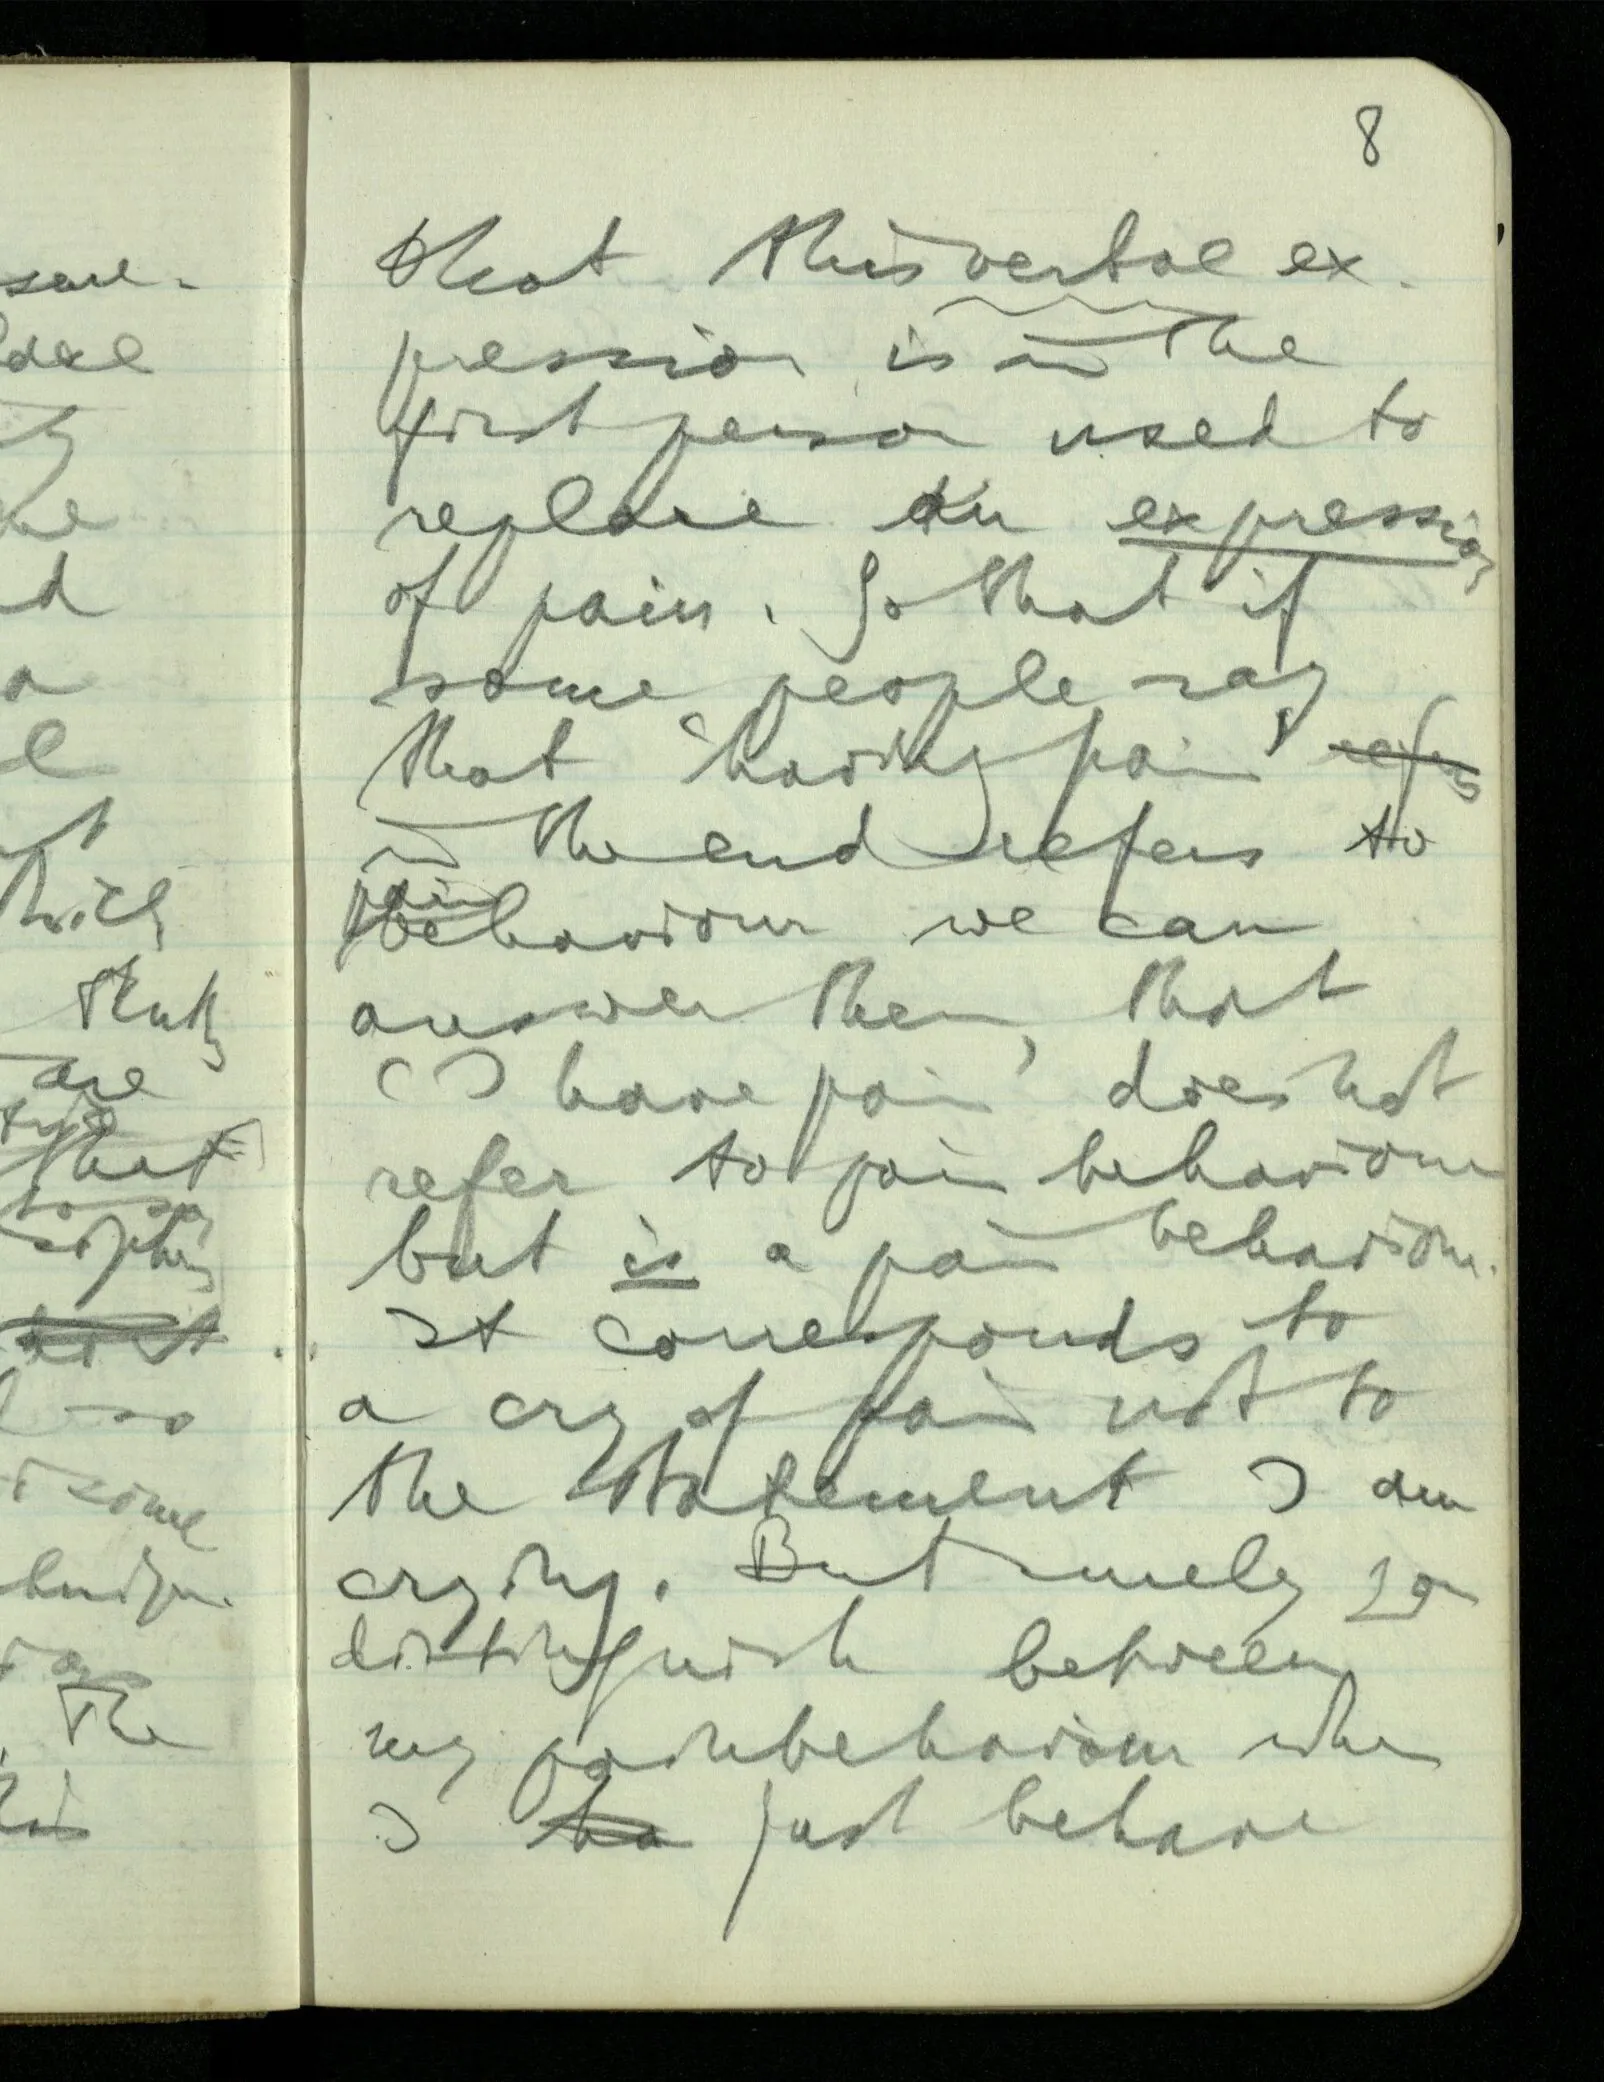 8
that this verbal ex-
pression is in the
first person used to
replace an expression
of pain. So that if
some people say
that 'having pain' refers
in the end refers to
pain
behaviour we can
answer them, that
'I have pain' does not
refer to pain behaviour
but is a pain behaviour.
It corresponds to
a cry of pain not to
the statement I am
crying. But surely you
distinguish between
my painbehaviour when
I ha just behave
same
the
which
are
that
so
some
The